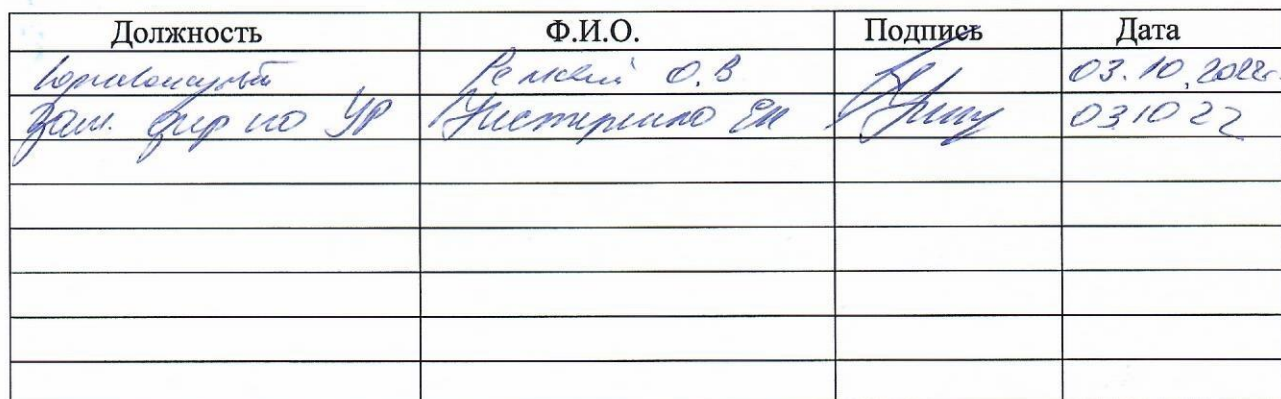 Должность Ф.И.О. Подпись Дата
Юрисконсульт О.В 03.10.2022г.
Зам. дир по УР Нестеренко ЕН 03.10 22